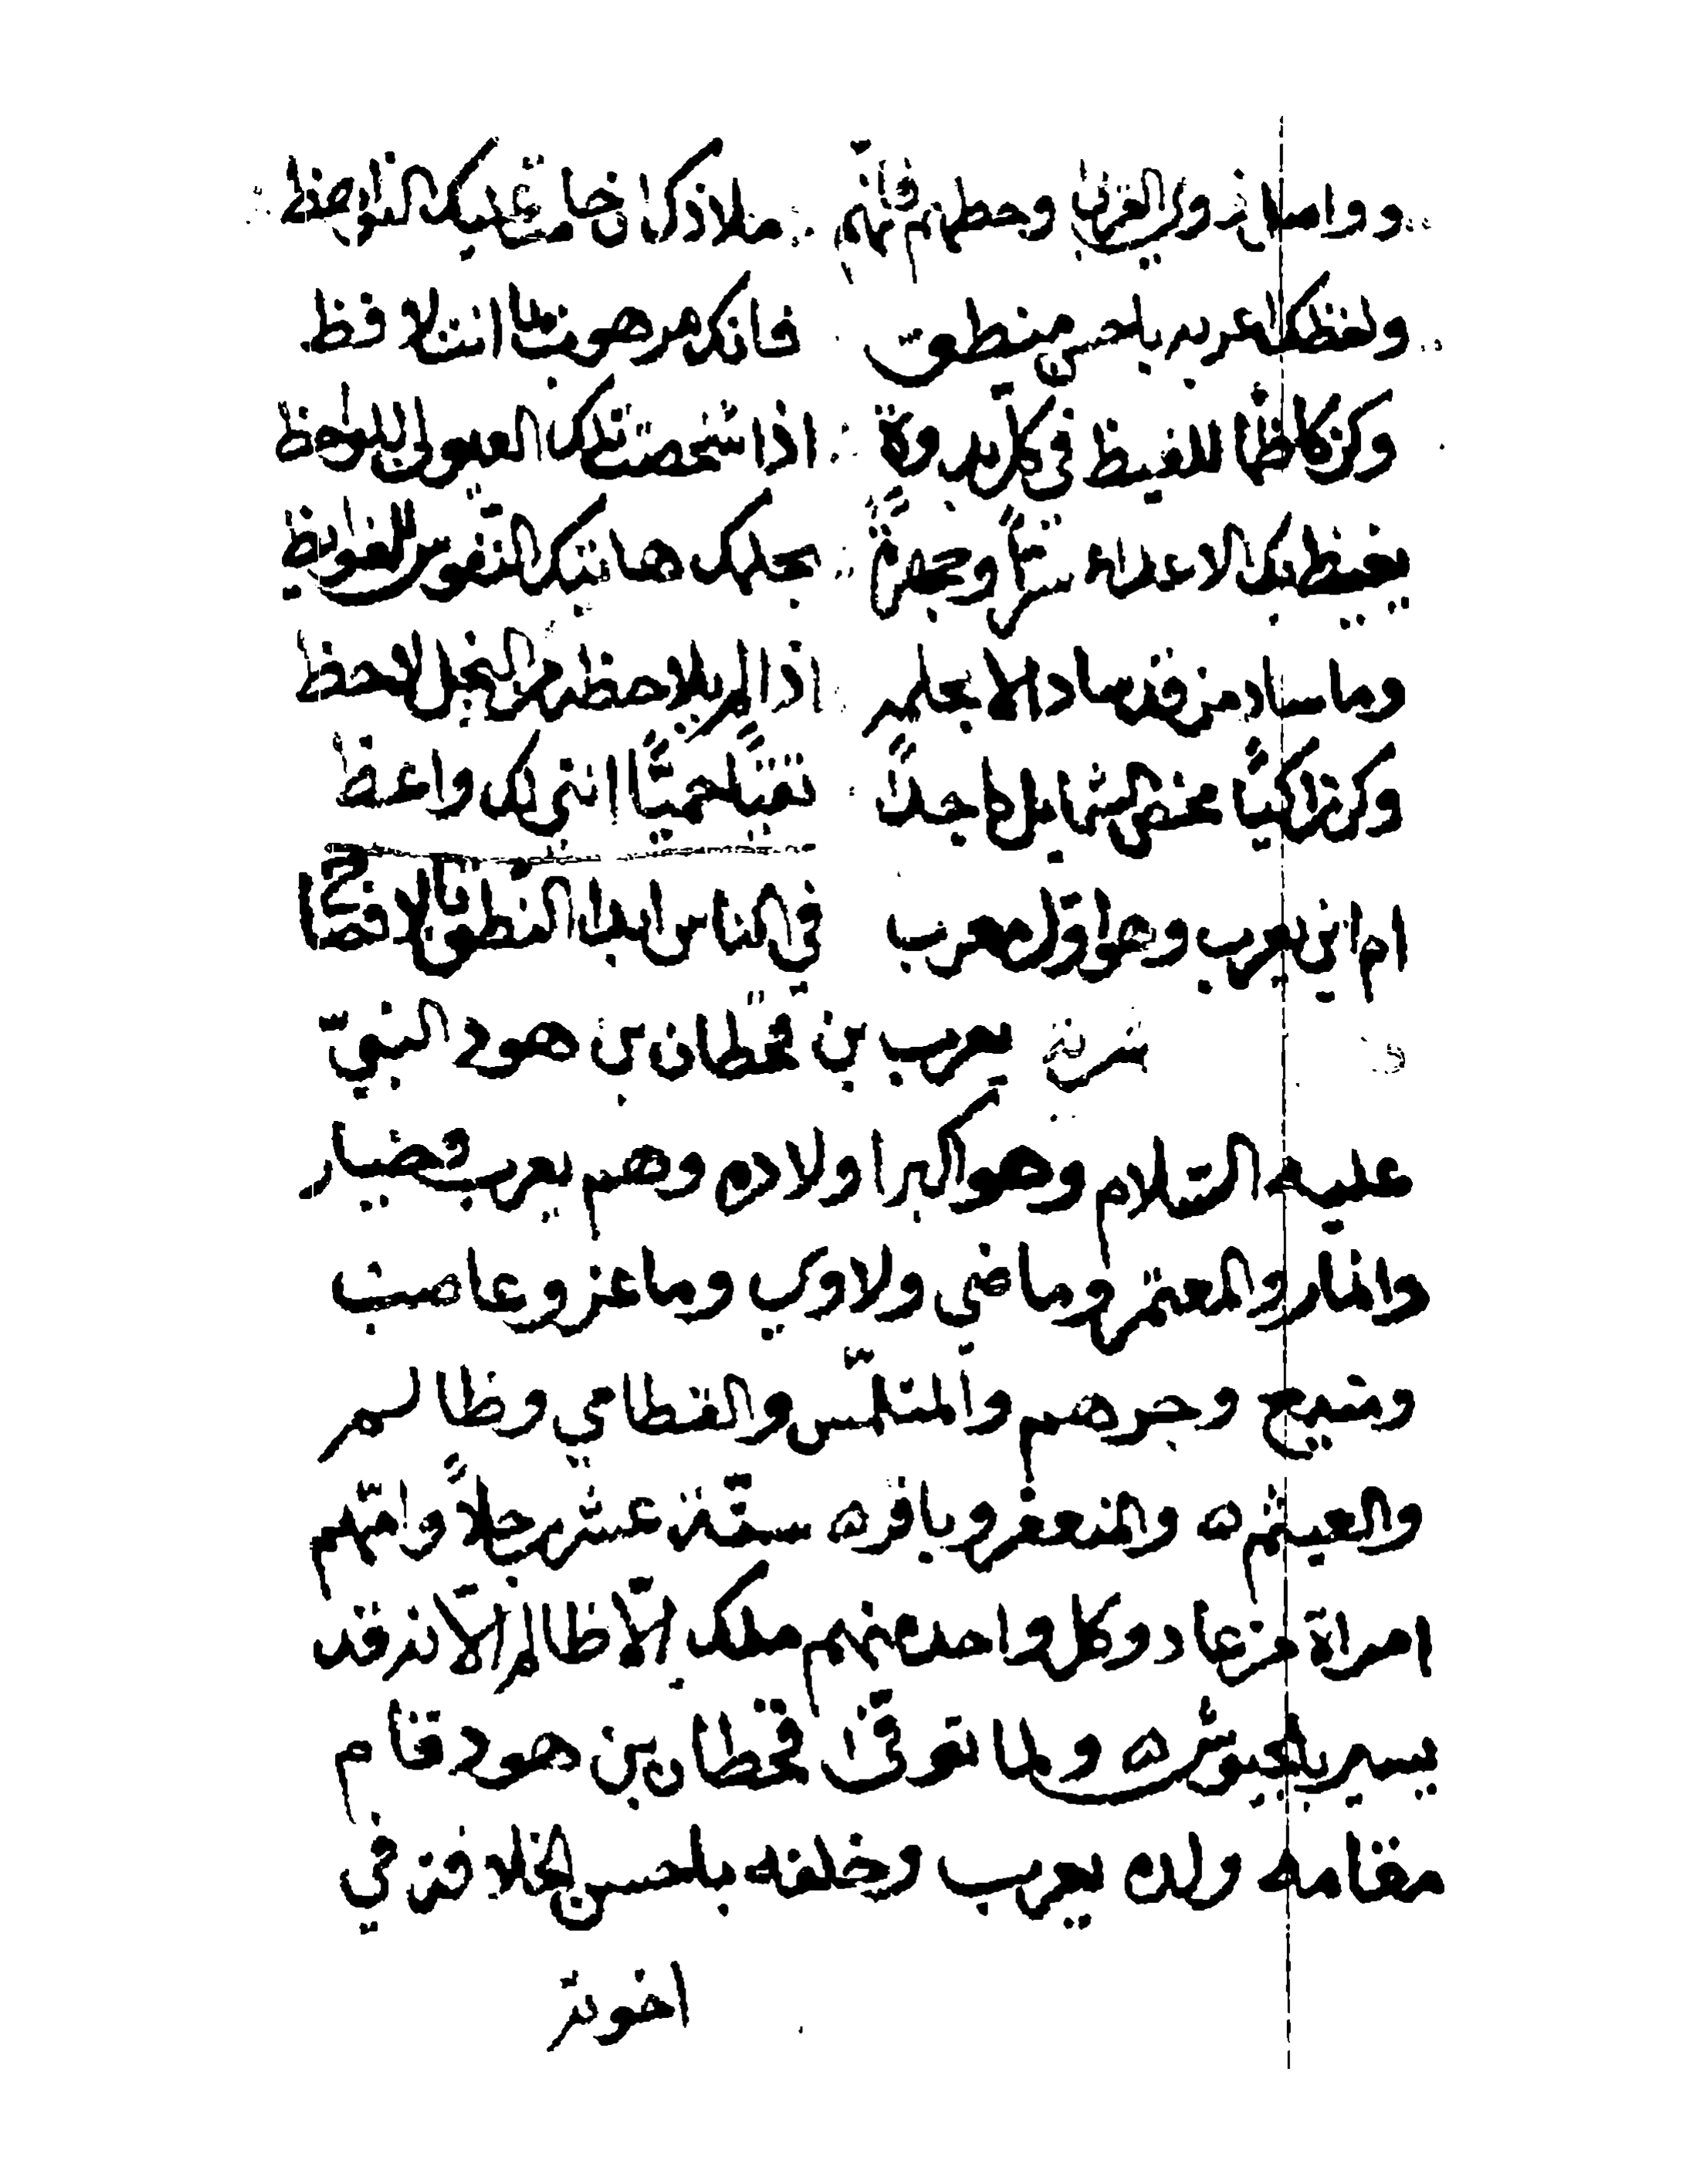 و واصل ذوي القربى وحطهم فانهم ملاذك ان خانتك عليك
ولفظك اعربه باحسن منطق فانك مرهون بما انت لافظ
وكن كاظما للغيظ في كل بدوة اذا شخصت تلك العيون اللواحظ
يغيظ بك الاعداء سرّاً وجهرةً بحلمك هاتيك النفوس الغوايظ
وما ساد من قد ساد الا بحلمه اذا لم يلاحظه من البخل لاحظ
وكن ذاكيًا محض الشمايل ماجداً تقيّاً حميّاً انني لك واعظ
ام اني يعرب وهو اوّل معرب في الناس ابدا النطق بالافصاح
شرية يعرب بن قحطان بن هود النبيّ
عليه السّلام وهو اكبر اولاده وهم يعرب وخيار
وانمار والمعتمر وماضي ولاوي وماعز وعاصب
ومنيع وجرهم والمتلمّس والقطامي وظالم
والعيثم ه والمتعفر وباقره ستّة عشر رجلاً وامّهم
امراة من عاد وكل واحد منهم ملك الّا ظالم الّا انه قد
يسير بالجيوش ه ولما توفىّ قحطان بن هود قام
مقامه ولده يعرب وخلفه باحسن الخلافة في
اخوته